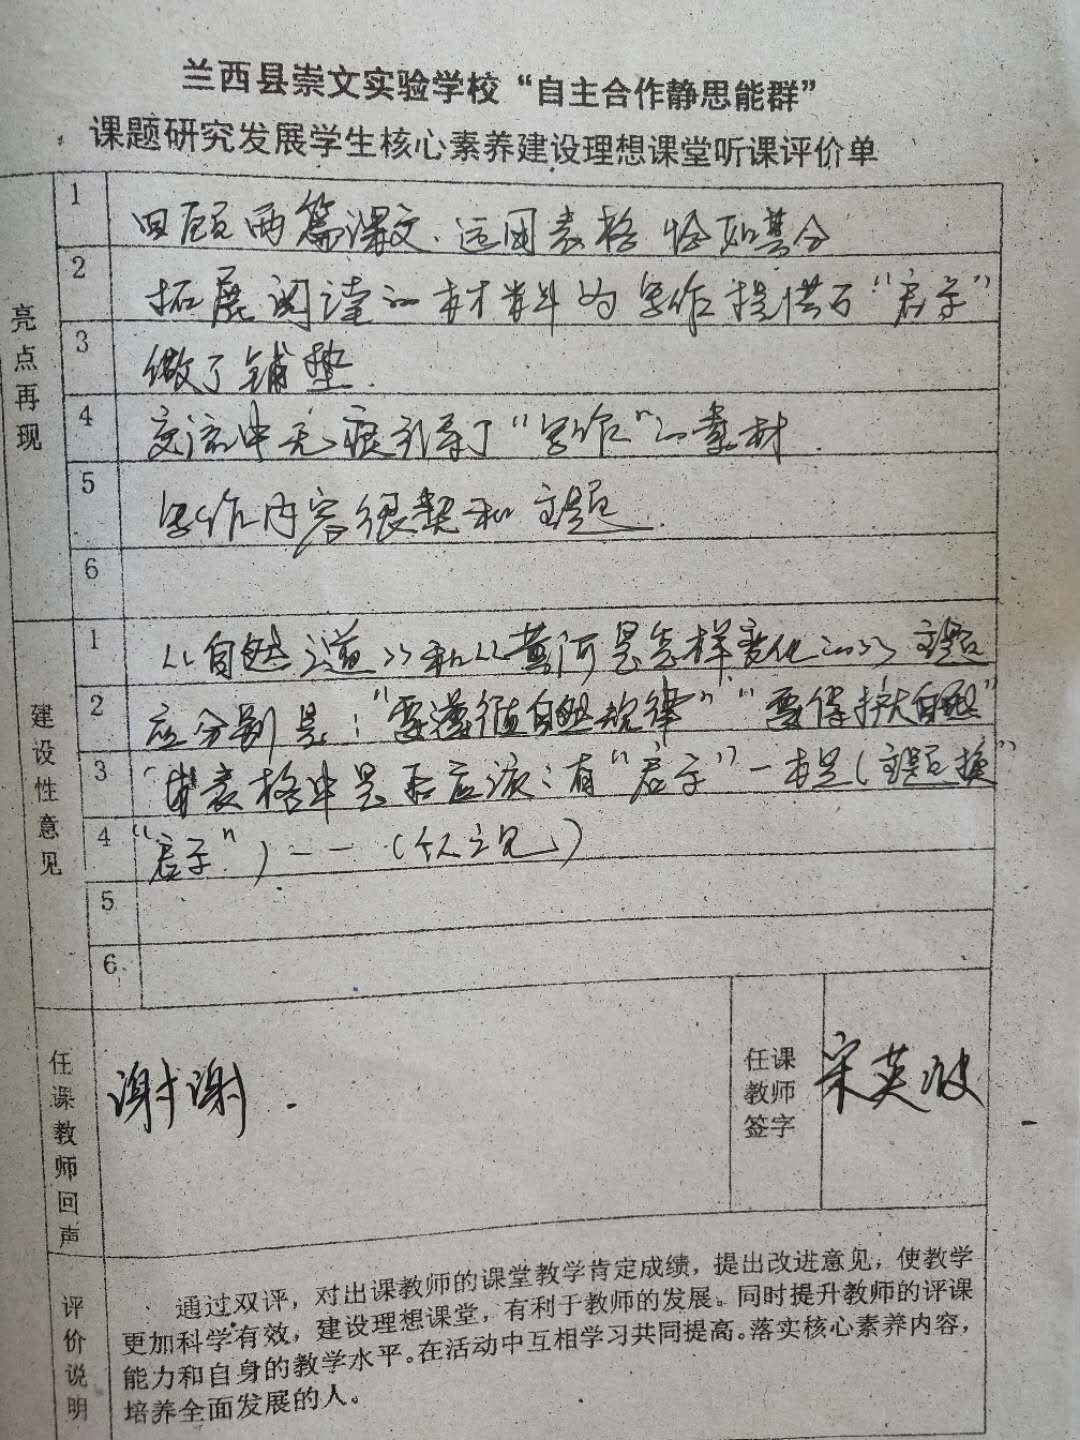 兰西县崇文实验学校“自主合作静思能群”
课题研究发展学生核心素养建设理想课堂听课评价单
亮点再现
1 回顾两篇课文.运用表格恰如其分
2 拓展阅读的材料为写作提供了“君子”
3 做了铺垫.
4 交流中无痕引导了“写作”的素材.
5 写作内容很契和主题.
6
建设性意见
1 《自然之道》和《黄河是怎样变化的》主题
2 应分别是:“要遵循自然规律”“要保护大自然”
3 表格中是否应该有“君子”一
4 “君子”)——(个人之见)
5
6
任课教师回声
谢谢.
任课教师签字
宋英波
评价说明
通过双评，对出课教师的课堂教学肯定成绩，提出改进意见，使教学
更加科学有效，建设理想课堂，有利于教师的发展。同时提升教师的评课
能力和自身的教学水平。在活动中互相学习共同提高。落实核心素养内容，
培养全面发展的人。